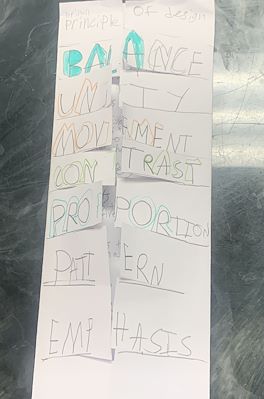 principle Of design
BALANCE
UNITY
MOVEMENT
CONTRAST
PROPORTION
PATTERN
EMPHASIS